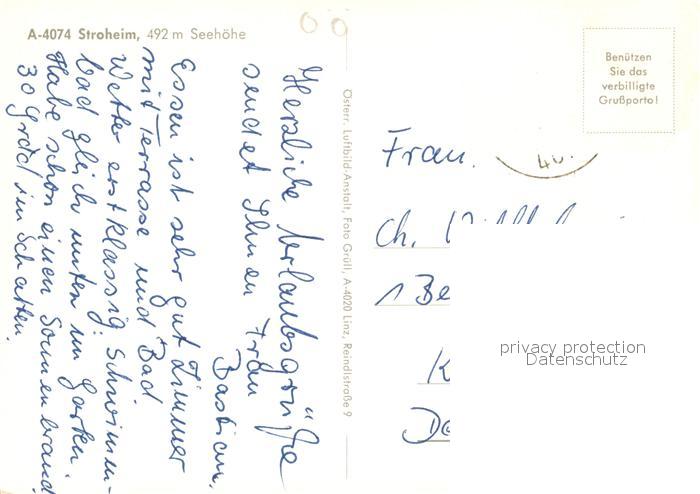 A-4074 Stroheim, 492 m Seehöhe
Herzliche Urlaubsgrüße
sendet Ihnen Frau
Bastian.
Essen ist sehr gut Zimmer
mit Terrasse und Bad
Wetter erstklassig. Schwimm-
bad gleich unten im Garten.
Habe schon einen Sonnenbrand
30 Grad im Schatten.
Österr. Luftbild-Anstalt, Foto Grüll, A-4020 Linz, Reindlstraße 9
Benützen
Sie das
verbilligte
Grußporto!
Frau.
40.
Ch.
1 Be
K
De
privacy protection
Datenschutz